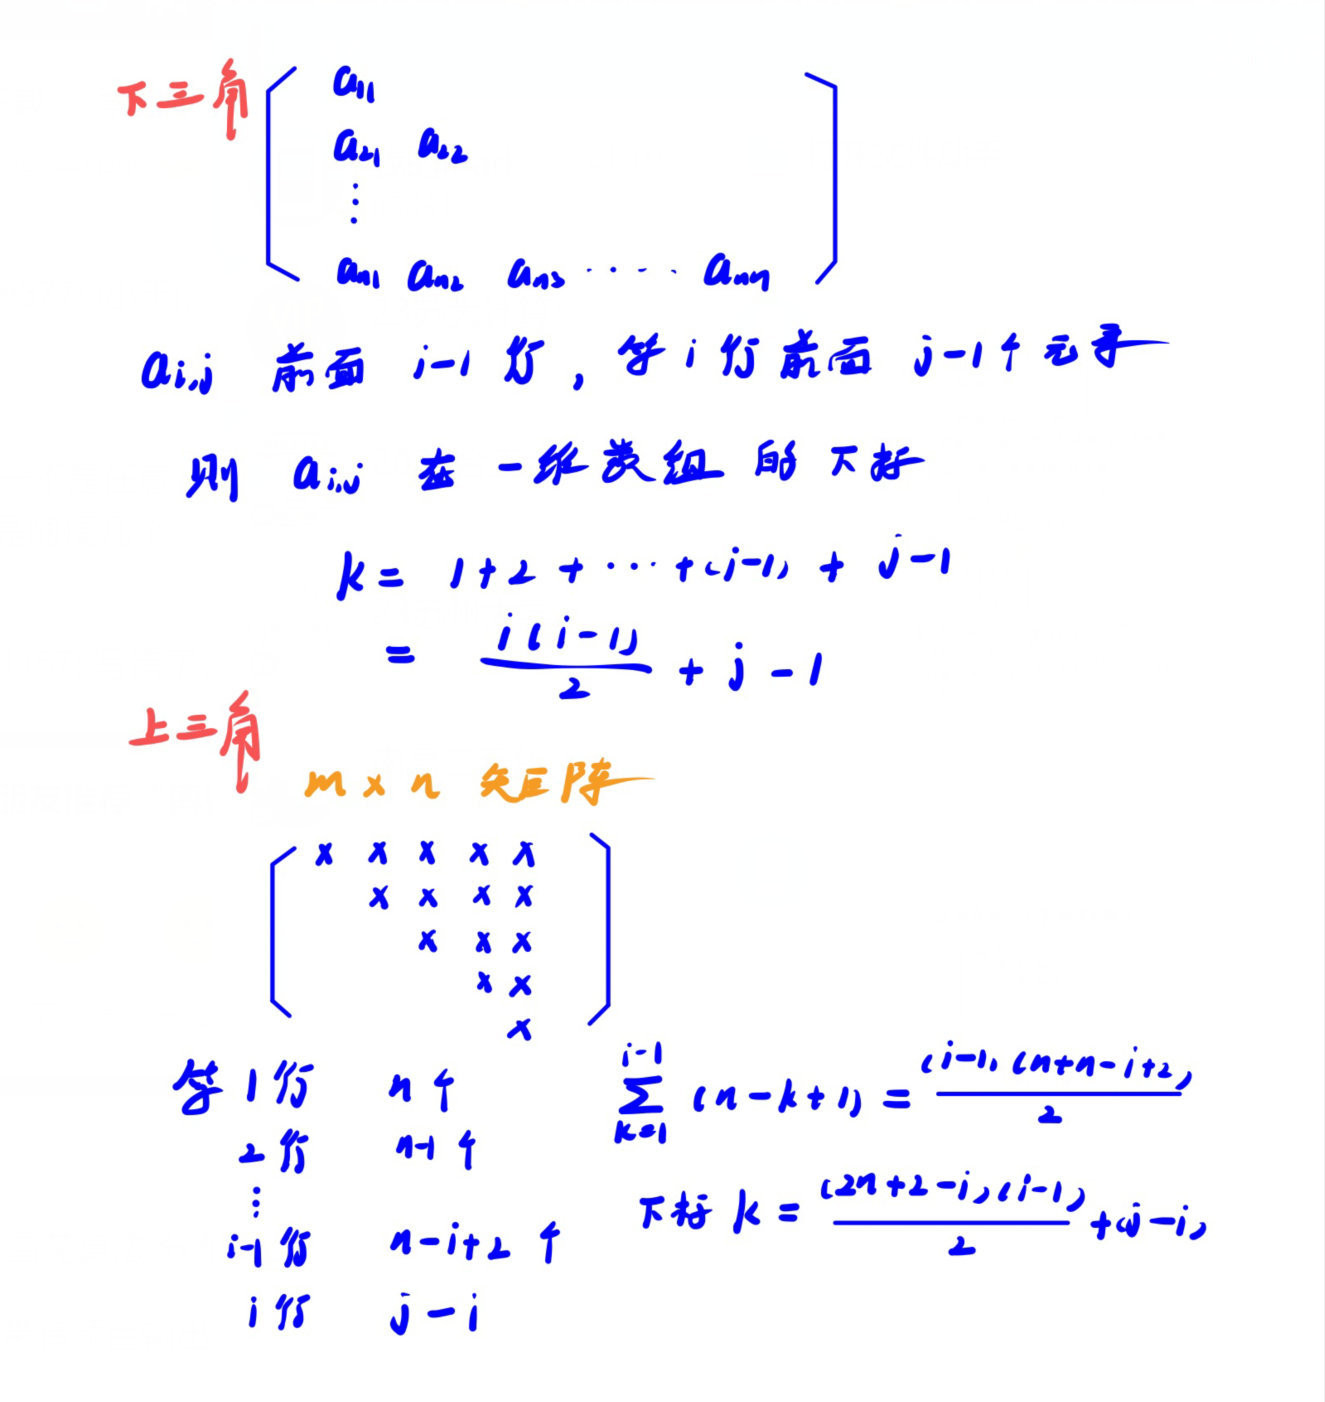 下三角
a₁₁
a₂₁ a₂₂
⋮
aₙ₁ aₙ₂ aₙ₃ ····· aₙₙ
aᵢ,ⱼ 前面 i-1 行, 第 i 行前面 j-1 个元素
则 aᵢ,ⱼ 在一维数组的下标
k = 1+2+···+(i-1) + j-1
= i(i-1)/2 + j - 1
上三角
m × n 矩阵
x x x x x
x x x x
x x x
x x
x
第 1 行 n 个
2 行 n-1 个
⋮
i-1 行 n-i+2 个
i 行 j-i
∑_{k=1}^{i-1} (n-k+1) = (i-1)(n+n-i+2)/2
下标 k = (2n+2-i)(i-1)/2 + (j-i)